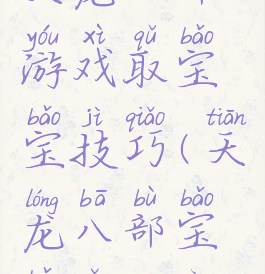 yóu xì qǔ bǎo
游戏取宝
bǎo jì qiǎo tiān
宝技巧(天
lóng bā bù bǎo
龙八部宝